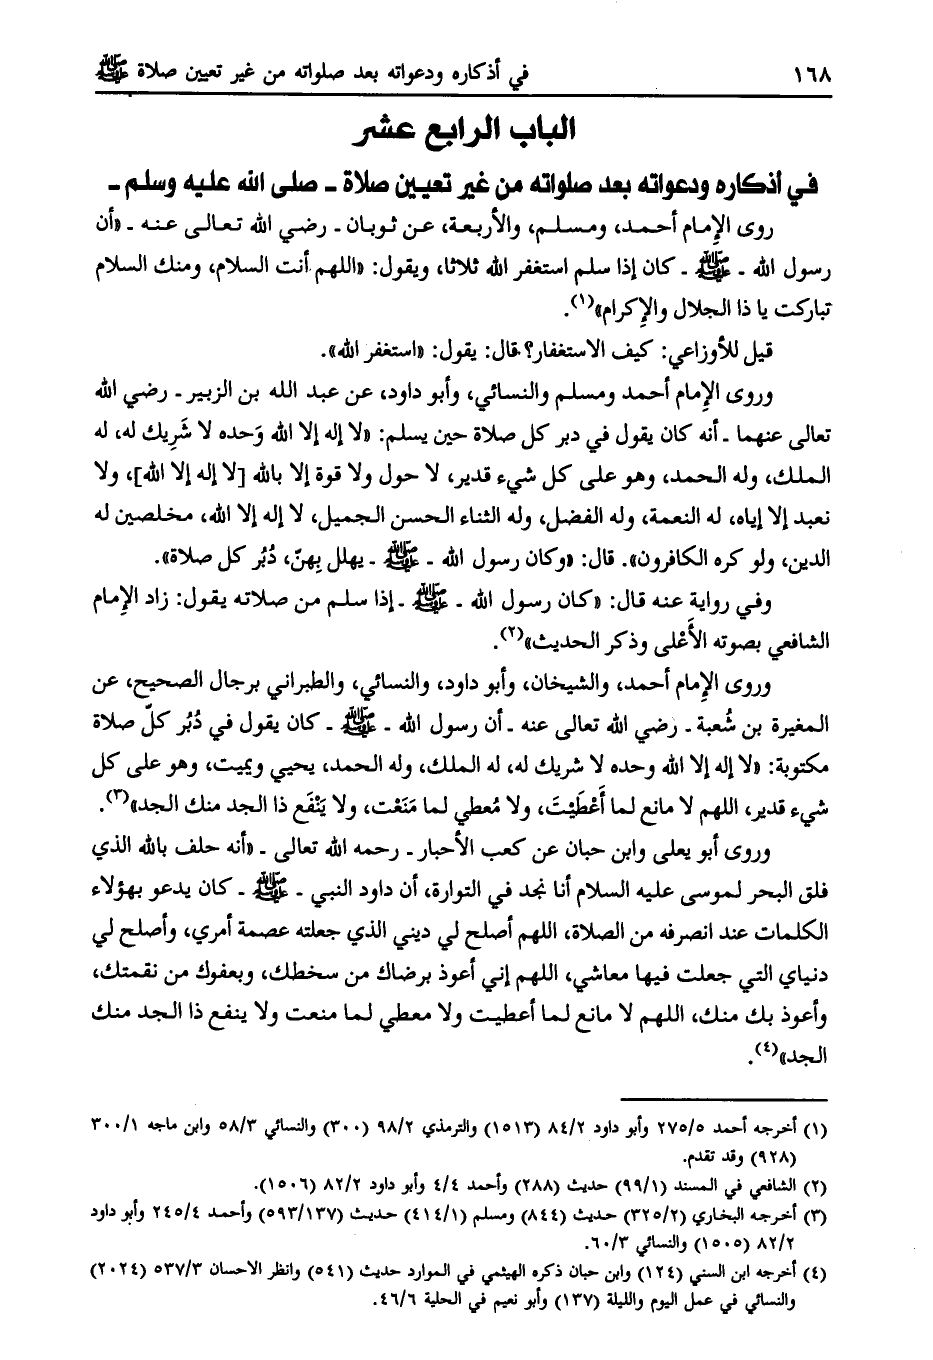 ١٦٨ في أذكاره ودعواته بعد صلواته من غير تعيين صلاة ﷺ
الباب الرابع عشر
في أذكاره ودعواته بعد صلواته من غير تعيين صلاة ـ صلى الله عليه وسلم ـ
روى الإمام أحمد، ومسلم، والأربعة، عن ثوبان ـ رضي الله تعالى عنه ـ «أن
رسول الله ـ ﷺ ـ كان إذا سلم استغفر الله ثلاثا، ويقول: «اللهم أنت السلام، ومنك السلام
تباركت يا ذا الجلال والإكرام»(١).
قيل للأوزاعي: كيف الاستغفار؟ قال: يقول: «استغفر الله».
وروى الإمام أحمد ومسلم والنسائي، وأبو داود، عن عبد الله بن الزبير ـ رضي الله
تعالى عنهما ـ أنه كان يقول في دبر كل صلاة حين يسلم: «لا إله إلا الله وَحده لا شَرِيك له، له
الملك، وله الحمد، وهو على كل شيء قدير، لا حول ولا قوة إلا بالله [لا إله إلا الله]، ولا
نعبد إلا إياه، له النعمة، وله الفضل، وله الثناء الحسن الجميل، لا إله إلا الله، مخلصين له
الدين، ولو كره الكافرون». قال: «وكان رسول الله ـ ﷺ ـ يهلل بِهنّ، دُبُر كل صلاة».
وفي رواية عنه قال: «كان رسول الله ـ ﷺ ـ إذا سلم من صلاته يقول: زاد الإمام
الشافعي بصوته الأَعْلى وذكر الحديث»(٢).
وروى الإمام أحمد، والشيخان، وأبو داود، والنسائي، والطبراني برجال الصحيح، عن
المغيرة بن شُعبة ـ رضي الله تعالى عنه ـ أن رسول الله ـ ﷺ ـ كان يقول في دُبُر كلّ صلاة
مكتوبة: «لا إله إلا الله وحده لا شريك له، له الملك، وله الحمد، يحيي ويميت، وهو على كل
شيء قدير، اللهم لا مانع لما أَعْطَيْتَ، ولا مُعطي لما مَنَعْت، ولا يَنْفَع ذا الجد منك الجد»(٣).
وروى أبو يعلى وابن حبان عن كعب الأحبار ـ رحمه الله تعالى ـ «أنه حلف بالله الذي
فلق البحر لموسى عليه السلام أنا نجد في التوارة، أن داود النبي ـ ﷺ ـ كان يدعو بهؤلاء
الكلمات عند انصرفه من الصلاة، اللهم أصلح لي ديني الذي جعلته عصمة أمري، وأصلح لي
دنياي التي جعلت فيها معاشي، اللهم إني أعوذ برضاك من سخطك، وبعفوك من نقمتك،
وأعوذ بك منك، اللهم لا مانع لما أعطيت ولا معطي لما منعت ولا ينفع ذا الجد منك
الجد»(٤).
(١) أخرجه أحمد ٢٧٥/٥ وأبو داود ٨٤/٢ (١٥١٣) والترمذي ٩٨/٢ (٣٠٠) والنسائي ٥٨/٣ وابن ماجه ٣٠٠/١
(٩٢٨) وقد تقدم.
(٢) الشافعي في المسند (٩٩/١) حديث (٢٨٨) وأحمد ٤/٤ وأبو داود ٨٢/٢ (١٥٠٦).
(٣) أخرجه البخاري (٣٢٥/٢) حديث (٨٤٤) ومسلم (٤١٤/١) حديث (٥٩٣/١٣٧) وأحمد ٢٤٥/٤ وأبو داود
٨٢/٢ (١٥٠٥) والنسائي ٦٠/٣.
(٤) أخرجه ابن السني (١٢٤) وابن حبان ذكره الهيثمي في الموارد حديث (٥٤١) وانظر الاحسان ٥٣٧/٣ (٢٠٢٤)
والنسائي في عمل اليوم والليلة (١٣٧) وأبو نعيم في الحلية ٤٦/٦.